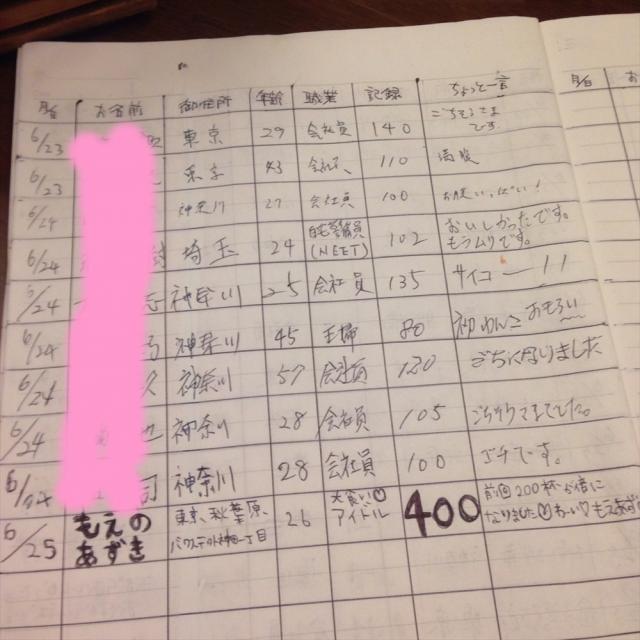 月日 お名前 御住所 年齢 職業 記録 ちょっと一言 月日 お
6/23 東京 29 会社員 140 ごちそうさま
です
6/23 東京 43 会社員 110 満腹
6/24 神奈川 27 会社員 100 お腹いっぱい!
6/24 埼玉 24 自宅警備員 102 おいしかったです。
(NEET) もうムリです。
6/24 神奈川 25 会社員 135 サイコー!!
6/24 神奈川 45 主婦 80 初わんこ おもろい〜
6/24 神奈川 57 会社員 130 ごちになりました
6/24 神奈川 28 会社員 105 ごちそうさまでした。
6/24 神奈川 28 会社員 100 ゴチです。
6/25 もえの 東京、秋葉原、 26 大食い♡ 400 前回200杯が倍に
あずき バクステ外神田一丁目 アイドル なりました♡おーい♡もえあず